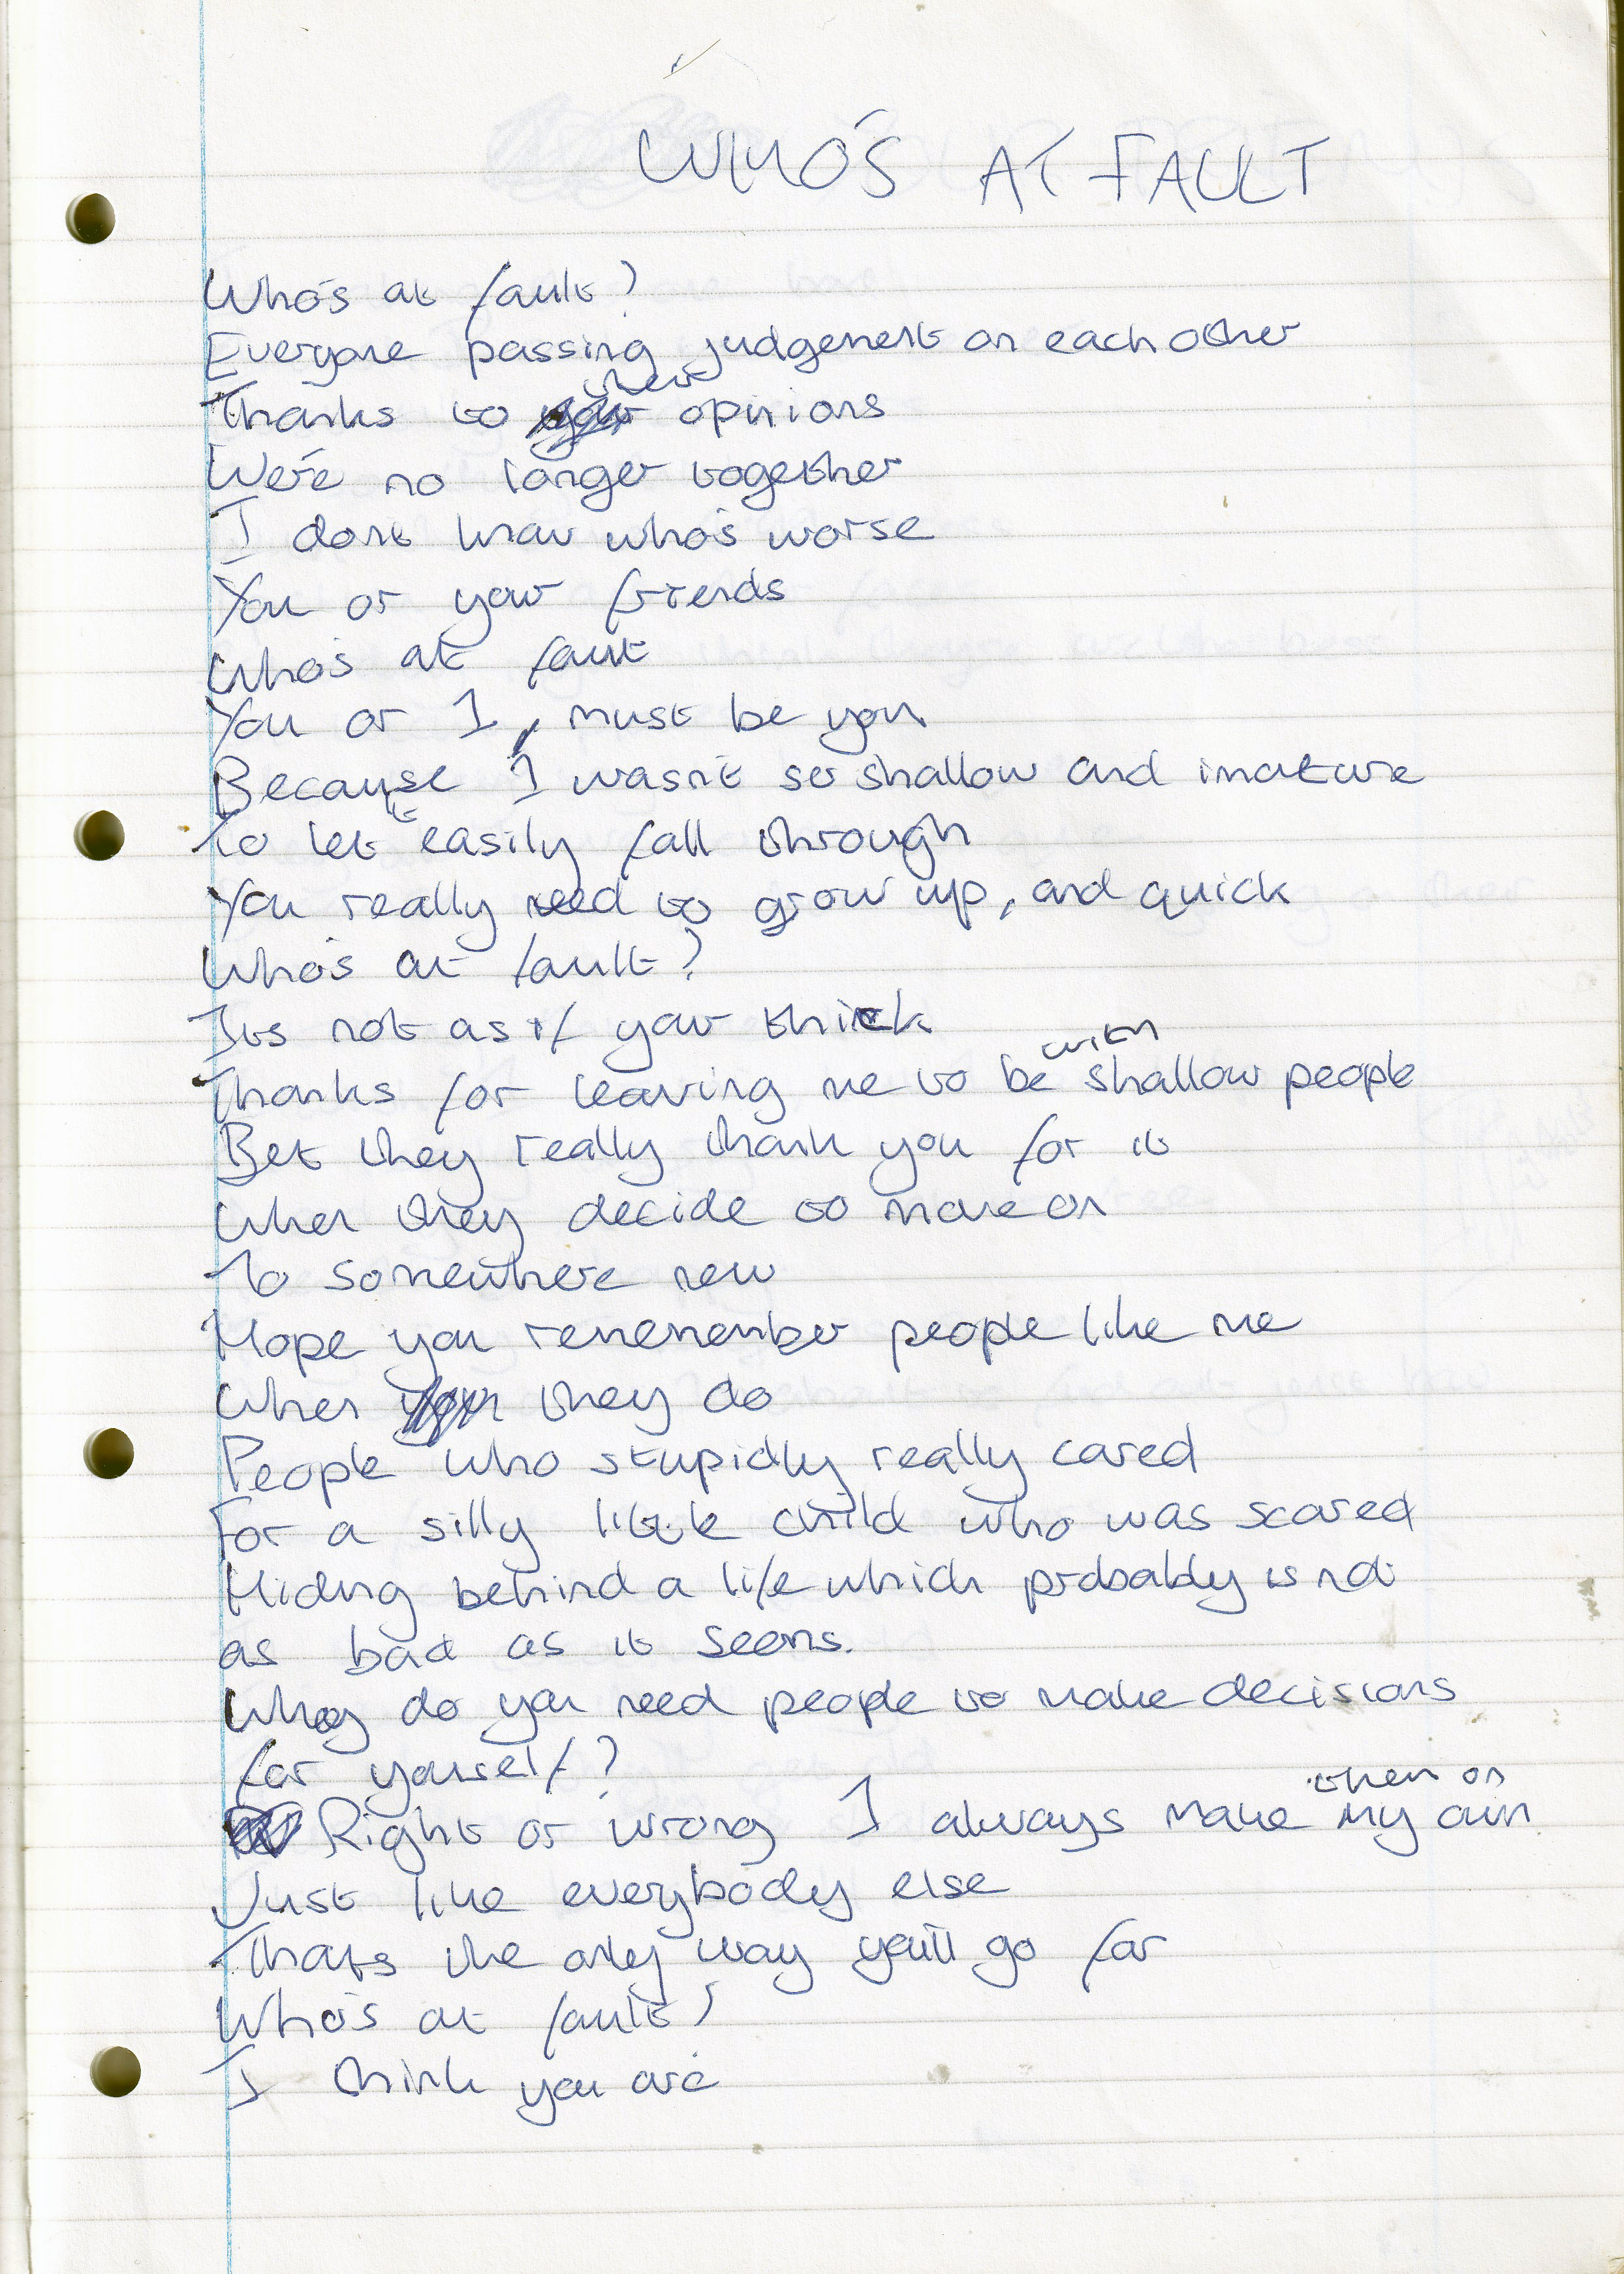 WHO'S AT FAULT
Who's at fault?
Everyone passing judgement on each other
Thanks to their opinions
We're no longer together
I don't know who's worse
You or your friends
Who's at fault
You or I, must be you
Because I wasn't so shallow and imature
To let it easily fall through
You really need to grow up, and quick
Who's at fault?
Its not as if your thick
Thanks for leaving me to be with shallow people
Bet they really thank you for it
When they decide to move on
To somewhere new
Hope you rememember people like me
When they do
People who stupidly really cared
For a silly little child who was scared
Hiding behind a life which probably is not
as bad as it seems.
Why do you need people to make decisions
for youself?
Right or wrong I always make them on my own
Just like everybody else
Thats the only way you'll go far
Who's at fault?
I think you are